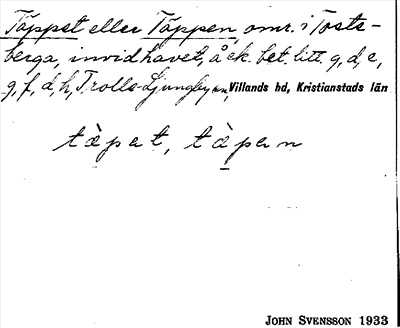 Täppet eller Täppen, omr. i Tosts-
berga, invid havet, å ek. bet. litt. g, d, e,
g, f, d, h, Trolle-Ljungby sn, Villands hd, Kristianstads län
tàpet, tàpen
JOHN SVENSSON 1933